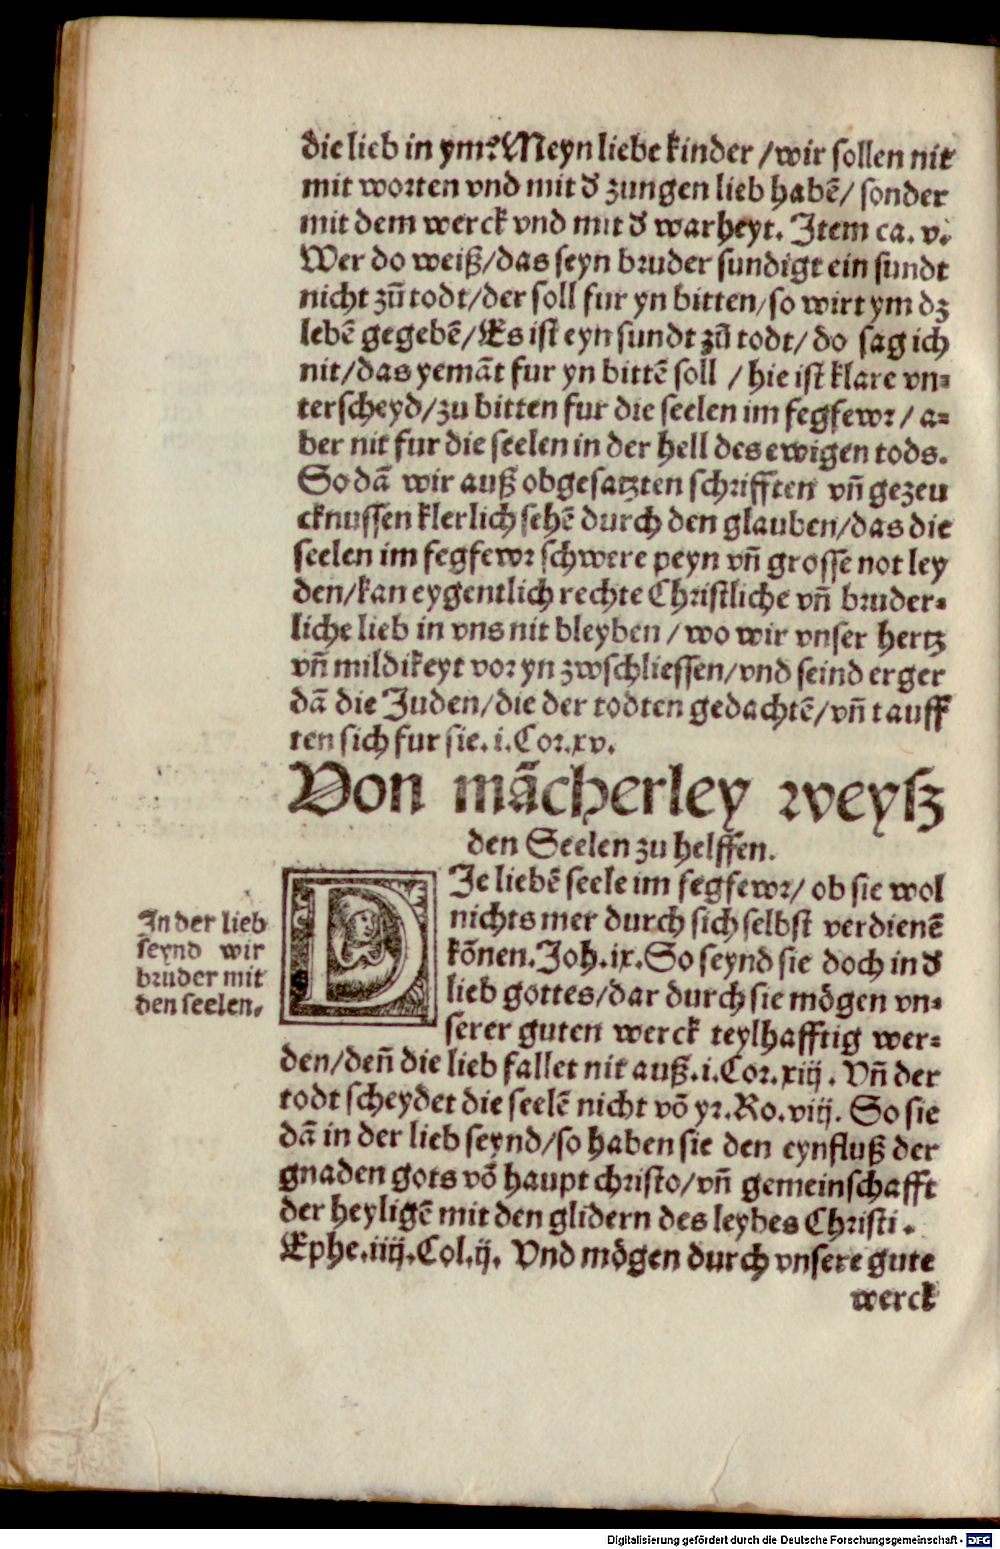 die lieb in ym? Meyn liebe kinder /wir sollen nit
mit worten vnd mit d̕ zungen lieb habē/ sonder
mit dem werck vnd mit d̕ warheyt. Item ca. v.
Wer do weiß/das seyn bruder sundigt ein sundt
nicht zů todt/der soll fur yn bitten/so wirt ym dz
lebē gegebē/Es ist eyn sundt zů todt/ do sag ich
nit/das yemāt fur yn bittē soll / hie ist klare vn=
terscheyd/zu bitten fur die seelen im fegfewr/ a=
ber nit fur die seelen in der hell des ewigen tods.
So dā wir auß obgesatzten schrifften vn̄ gezeu
cknussen klerlich sehē durch den glauben/das die
seelen im fegfewr schwere peyn vn̄ grosse not ley
den/kan eygentlich rechte Christliche vn̄ bruder=
liche lieb in vns nit bleyben / wo wir vnser hertz
vn̄ mildikeyt vor yn zwschliessen/vnd seind erger
dā die Juden/die der todten gedachtē/vn̄ tauff
ten sich fur sie. i. Cor. xv.
Von mācherley weysz
den Seelen zu helffen.
DIe liebē seele im fegfewr/ ob sie wol
nichts mer durch sich selbst verdienē
kōnen. Joh. ix. So seynd sie doch in d̕
lieb gottes/dar durch sie mögen vn=
serer guten werck teylhafftig wer=
den/den̄ die lieb fallet nit auß. i. Cor. xiij. Vn̄ der
todt scheydet die seelē nicht vō yr. Ro. viij. So sie
dā in der lieb seynd/so haben sie den eynfluß der
gnaden gots vō haupt christo/vn̄ gemeinschafft
der heyligē mit den glidern des leybes Christi.
Ephe. iiij. Col. ij. Vnd mögen durch vnsere gute
werck
In der lieb
seynd wir
bruder mit
den seelen.
Digitalisierung gefördert durch die Deutsche Forschungsgemeinschaft - DFG